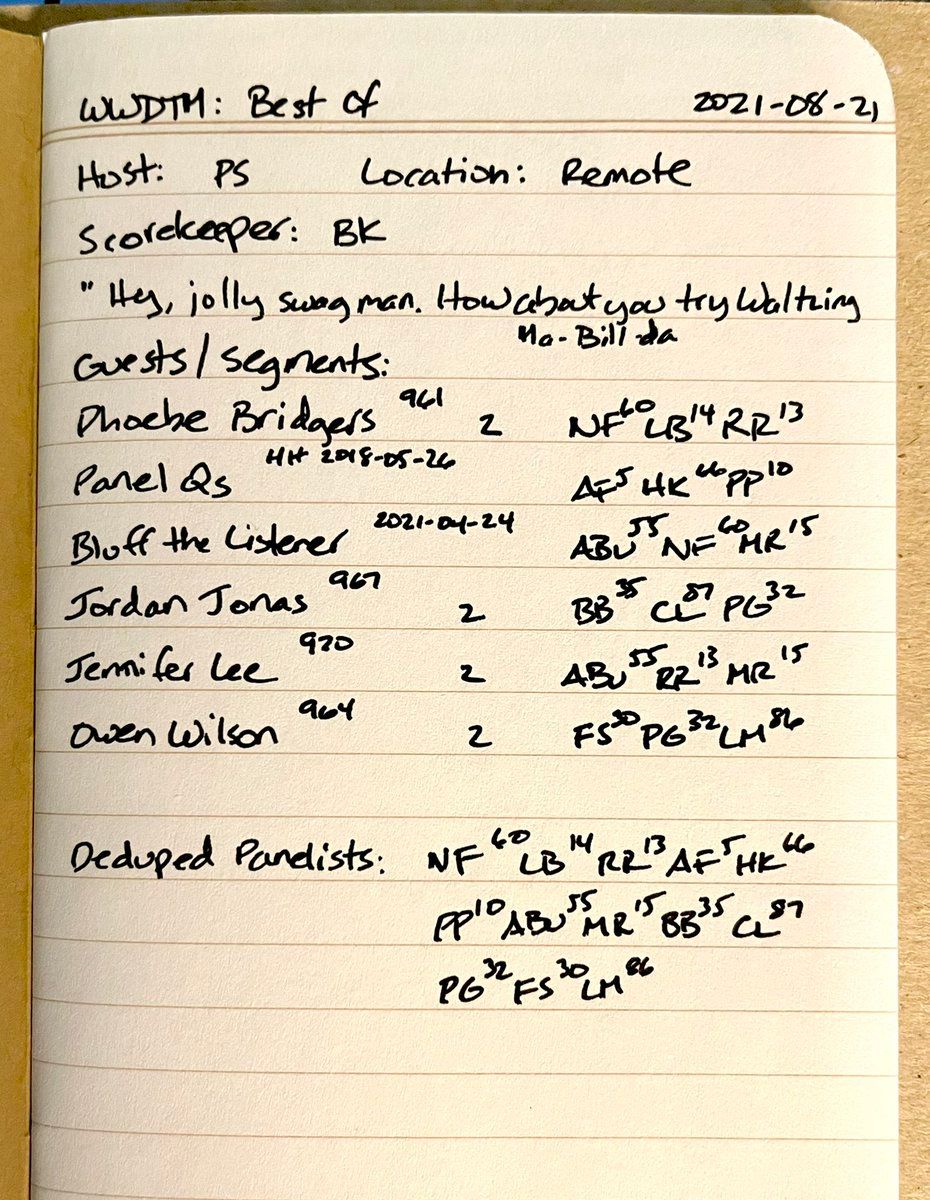 WWDTM: Best Of 2021-08-21
Host: PS Location: Remote
Scorekeeper: BK
"Hey, jolly swagman. How about you try Waltzing
Ma-Bill-da
Guests/Segments:
Phoebe Bridgers 961 2 NF60 LB14 RR13
Panel Qs HH 2018-05-26 AF5 HK66 PP10
Bluff the Listener 2021-04-24 ABU55 NF60 MR15
Jordan Jonas 967 2 BB35 CL87 PG32
Jennifer Lee 970 2 ABU55 RR13 MR15
Owen Wilson 964 2 FS30 PG32 LM86
Deduped Panelists: NF60 LB14 RR13 AF5 HK66
PP10 ABU55 MR15 BB35 CL87
PG32 FS30 LM86